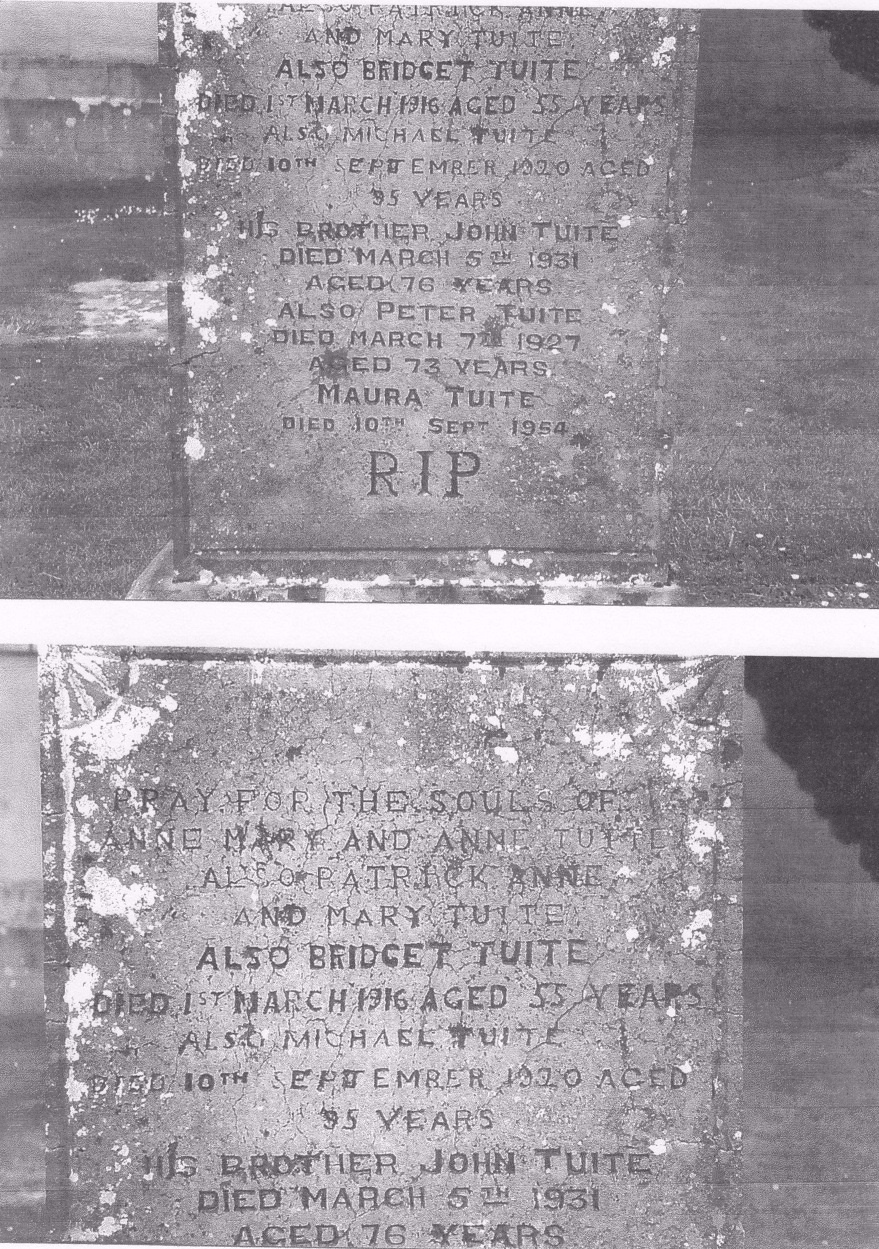 ALSO PATRICK ANNE
AND MARY TUITE
ALSO BRIDGET TUITE
DIED 1ST MARCH 1916 AGED 55 YEARS
ALSO MICHAEL TUITE
DIED 10TH SEPTEMBER 1920 AGED
95 YEARS
HIS BROTHER JOHN TUITE
DIED MARCH 5TH 1931
AGED 76 YEARS
ALSO PETER TUITE
DIED MARCH 7TH 1927
AGED 73 YEARS
MAURA TUITE
DIED 10TH SEPT 1954
RIP
PRAY FOR THE SOULS OF
ANNE MARY AND ANNE TUITE
ALSO PATRICK ANNE
AND MARY TUITE
ALSO BRIDGET TUITE
DIED 1ST MARCH 1916 AGED 55 YEARS
ALSO MICHAEL TUITE
DIED 10TH SEPTEMBER 1920 AGED
95 YEARS
HIS BROTHER JOHN TUITE
DIED MARCH 5TH 1931
AGED 76 YEARS